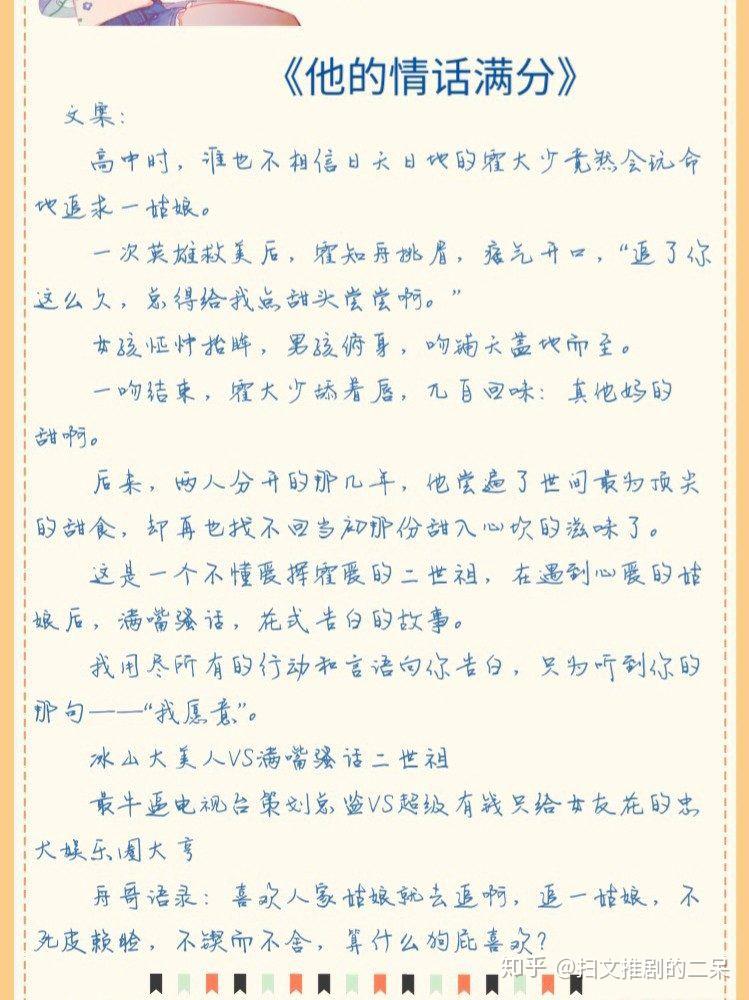 《他的情话满分》
文案：
高中时，谁也不相信日天日地的霍大少竟然会玩命
地追求一姑娘。
一次英雄救美后，霍知舟挑眉，痞气开口，“追了你
这么久，总得给我点甜头尝尝啊。”
女孩怔忡抬眸，男孩俯身，吻铺天盖地而至。
一吻结束，霍大少舔着唇，兀自回味：真他妈的
甜啊。
后来，两人分开的那几年，他尝遍了世间最为顶尖
的甜食，却再也找不回当初那份甜入心坎的滋味了。
这是一个不懂爱挥霍爱的二世祖，在遇到心爱的姑
娘后，满嘴骚话，花式告白的故事。
我用尽所有的行动和言语向你告白，只为听到你的
那句——“我愿意”。
冰山大美人VS满嘴骚话二世祖
最牛逼电视台策划总监VS超级有钱只给女友花的忠
犬娱乐圈大亨
舟哥语录：喜欢人家姑娘就去追啊，追一姑娘，不
死皮赖脸，不锲而不舍，算什么狗屁喜欢？
知乎 @扫文推剧的二呆